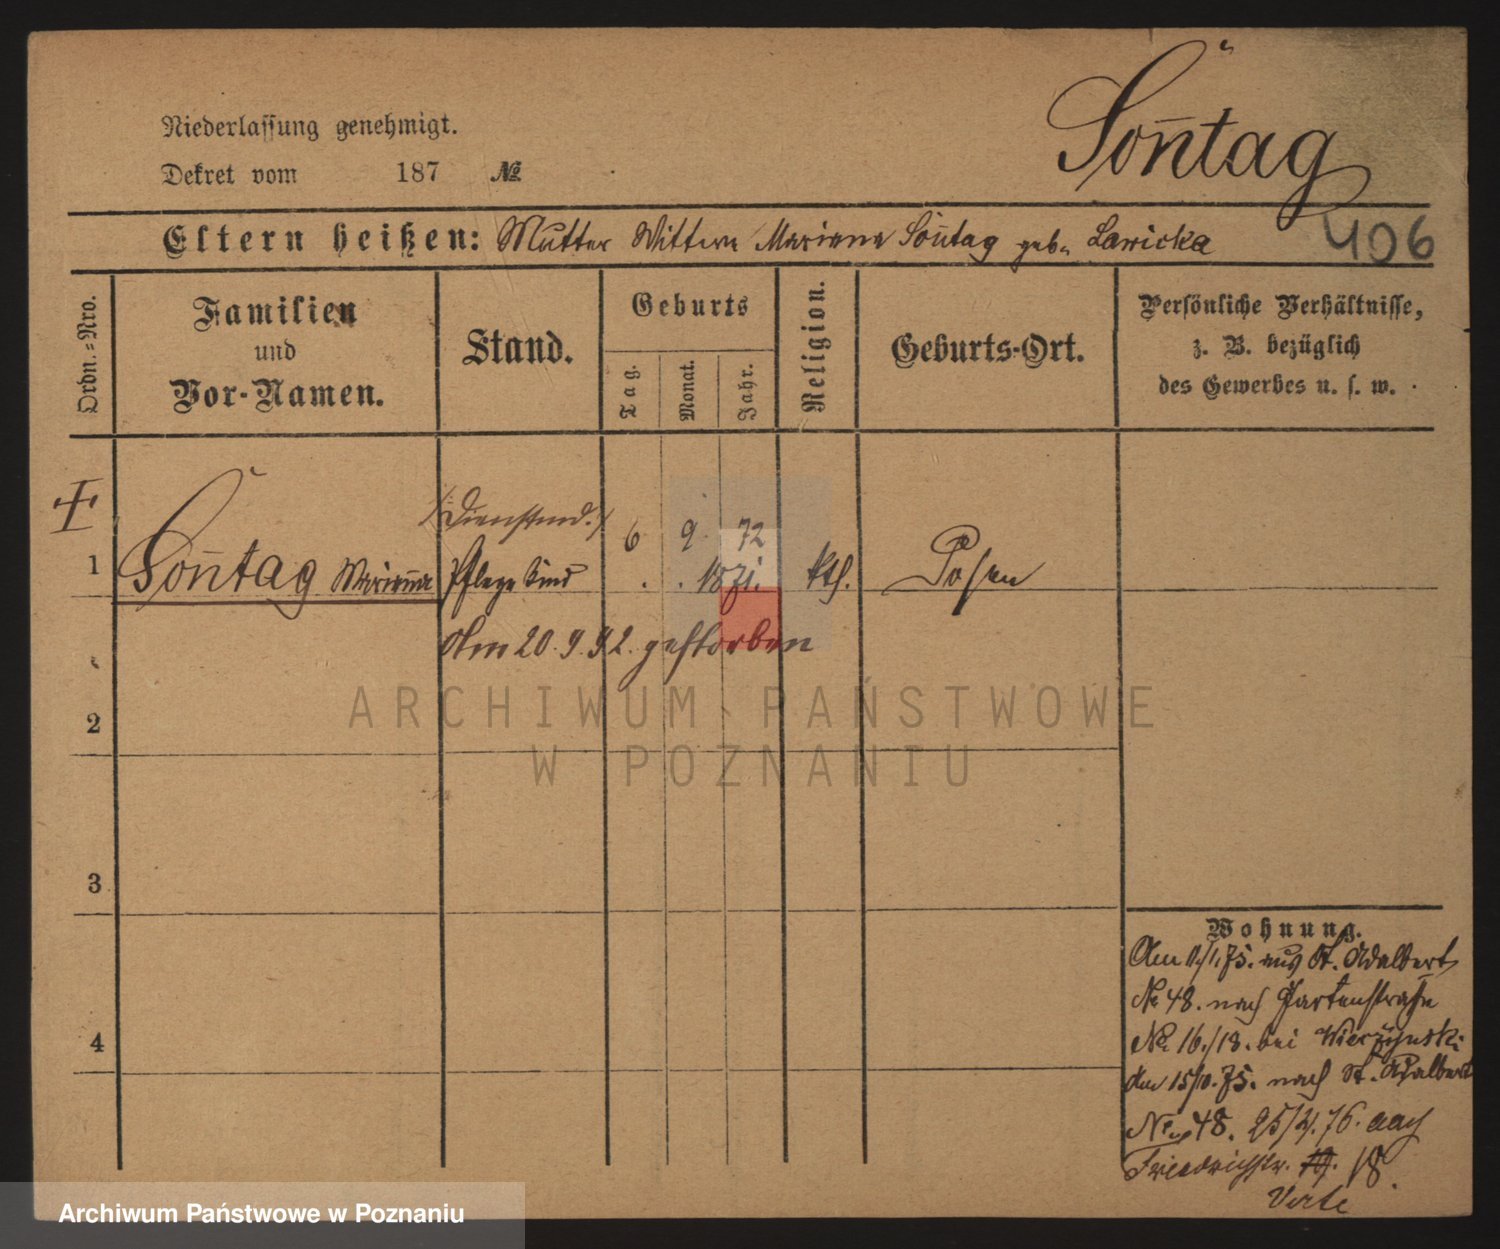 Sontag
Niederlassung genehmigt.
Dekret vom 187 №
Eltern heißen: Mutter Wittwe Mariana Sontag geb. Lawicka
406
Ordn.-Nro.
Familien
und
Vor-Namen.
Stand.
Geburts
Tag.
Monat.
Jahr.
Religion.
Geburts-Ort.
Persönliche Verhältnisse,
z. B. bezüglich
des Gewerbes u. s. w.
Dienstmd.
6 9. 72
1 Sontag Marianna Pflege Kind . . 1871. kth. Posen
Am 20.9.92. gestorben
ARCHIWUM PAŃSTWOWE
W POZNANIU
2
3
4
Wohnung.
Am 11/1.75. aus St. Adalbert
No 48. nach Gartenstraße
No 16./18. bei
den 15/10.75. nach St. Adalbert
No 48. 25/4.76. nach
Friedrichstr. 19. 18.
Verte
Archiwum Państwowe w Poznaniu